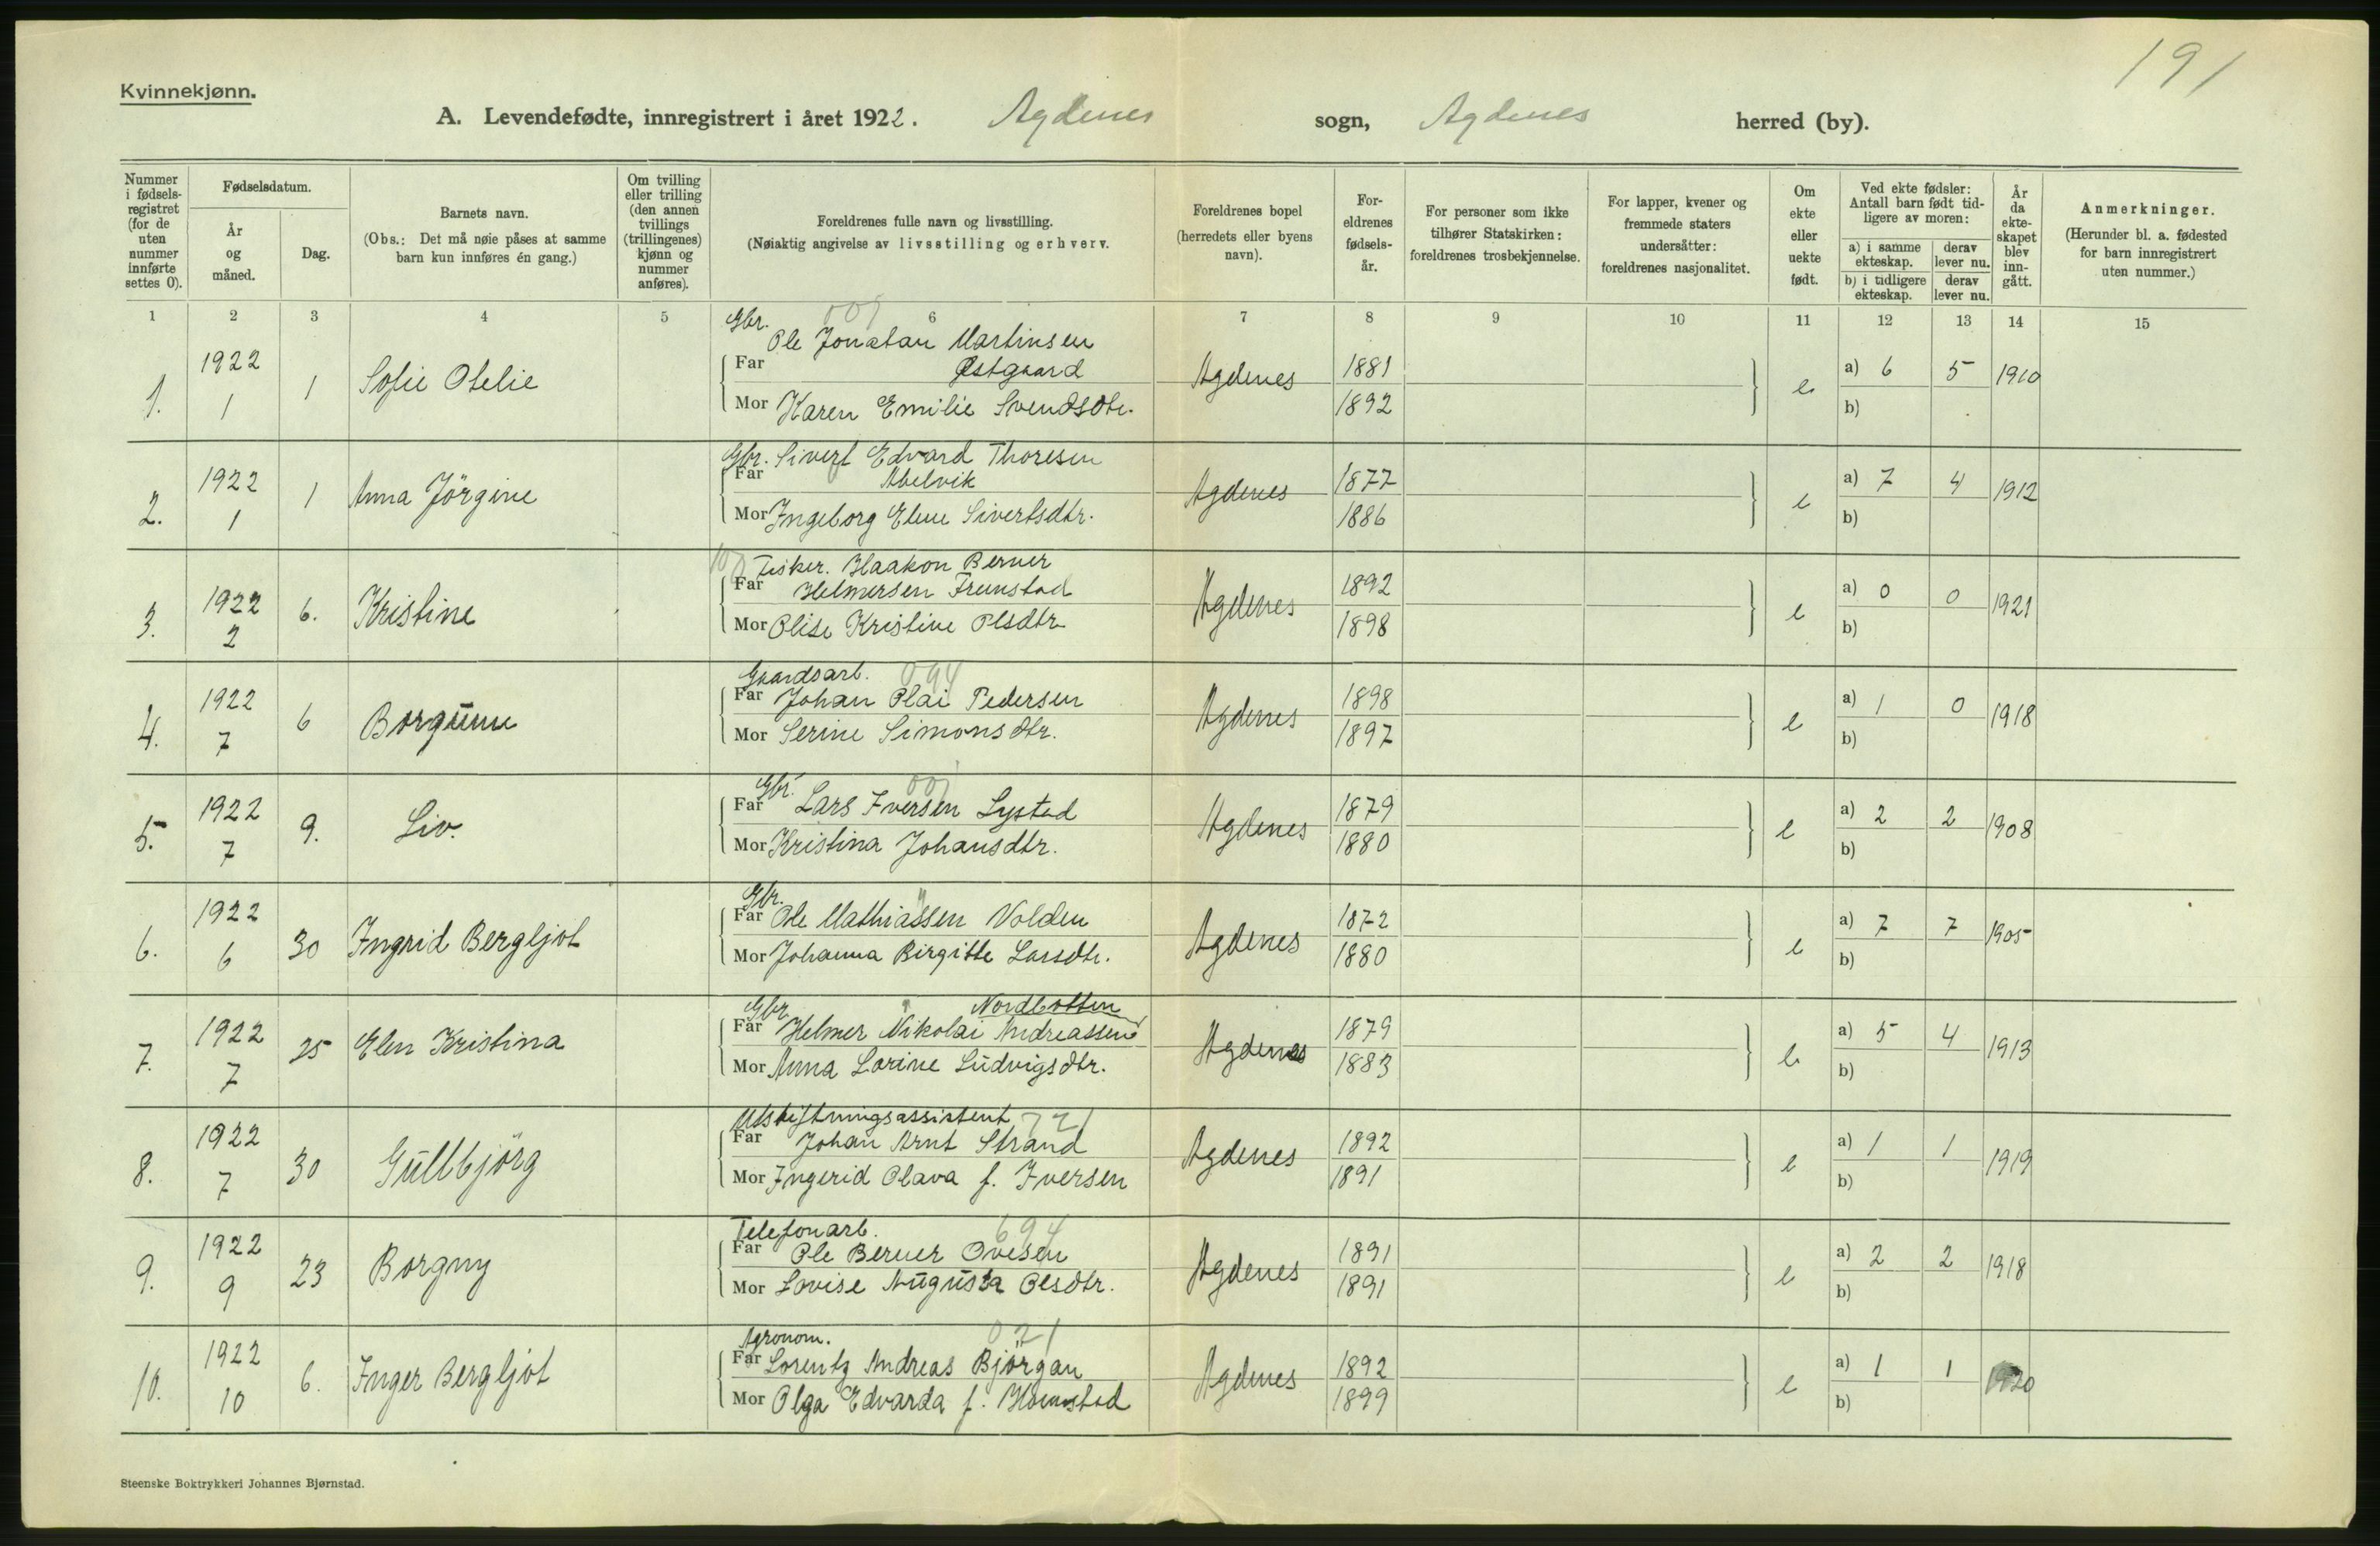 191
Kvinnekjønn.
A. Levendefødte, innregistrert i året 1922. Agdenes sogn, Agdenes herred (by).
Nummer i fødsels-registret (for de uten nummer innførte settes 0).
Fødselsdatum.
År og måned.
Dag.
Barnets navn.
(Obs.: Det må nøie påses at samme barn kun innføres én gang.)
Om tvilling eller trilling (den annen tvillings (trillingenes) kjønn og nummer anføres).
Foreldrenes fulle navn og livsstilling.
(Nøiaktig angivelse av livsstilling og erhverv.
Foreldrenes bopel (herredets eller byens navn).
For-eldrenes fødsels-år.
For personer som ikke tilhører Statskirken: foreldrenes trosbekjennelse.
For lapper, kvener og fremmede staters undersåtter: foreldrenes nasjonalitet.
Om ekte eller uekte født.
Ved ekte fødsler: Antall barn født tid-ligere av moren:
a) i samme ekteskap.
derav lever nu.
b) i tidligere ekteskap.
derav lever nu.
År da ekte-skapet blev inn-gått.
Anmerkninger.
(Herunder bl. a. fødested for barn innregistrert uten nummer.)
1 2 3 4 5 6 7 8 9 10 11 12 13 14 15
Gbr. 001
Ole Jonatan Martinsen
1. 1922 1 1 Sofie Otelie Far Østgaard Agdenes 1881 e a) 6 5 1910
Mor Karen Emilie Svendsdtr. 1892 b)
Gbr. Sivert Edvard Thoresen
2. 1922 1 1 Anna Jörgine Far Abelvik Agdenes 1877 e a) 7 4 1912
Mor Ingeborg Eline Sivertsdtr. 1886 b)
Fisker. Haakon Berner
3. 1922 2 6. Kristine Far Helmersen Frunstad Agdenes 1892 e a) 0 0 1921
Mor Olise Kristine Olsdtr 1898 b)
Gaardsarb. 094
4. 1922 7 6 Far Johan Olai Pedersen Agdenes 1898 e a) 1 0 1918
Mor Serine Simonsdtr. 1897 b)
Gbr. 001
5. 1922 7 9. Liv. Far Lars Iversen Lystad Agdenes 1879 e a) 2 2 1908
Mor Kristina Johansdtr. 1880 b)
Gbr. "
6. 1922 6 30 Ingrid Bergljot Far Ole Mathiassen Volden Agdenes 1872 e a) 7 7 1905
Mor Johanna Birgitte Larsdtr. 1880 b)
Gbr " Nordbotten
7. 1922 7 25 Elen Kristina Far Helmer Nikolai Andreassen Agdenes 1879 e a) 5 4 1913
Mor Anna Lorine Ludvigsdtr. 1883 b)
Utskiftningsassistent 721
8. 1922 7 30 Gullbjörg Far Johan Arnt Strand Agdenes 1892 e a) 1 1 1919
Mor Ingerid Olava f. Iversen 1891 b)
Telefonarb. 694
9. 1922 9 23 Borgny Far Ole Berner Ovesen Agdenes 1891 e a) 2 2 1918
Mor Lovise Augusta Olsdtr. 1891 b)
Agronom. 021
10. 1922 10 6. Inger Bergljot Far Lorentz Andreas Björgan Agdenes 1892 e a) 1 1 1920
Mor Olga Edvarda f. Homstad 1899 b)
Steenske Boktrykkeri Johannes Bjørnstad.